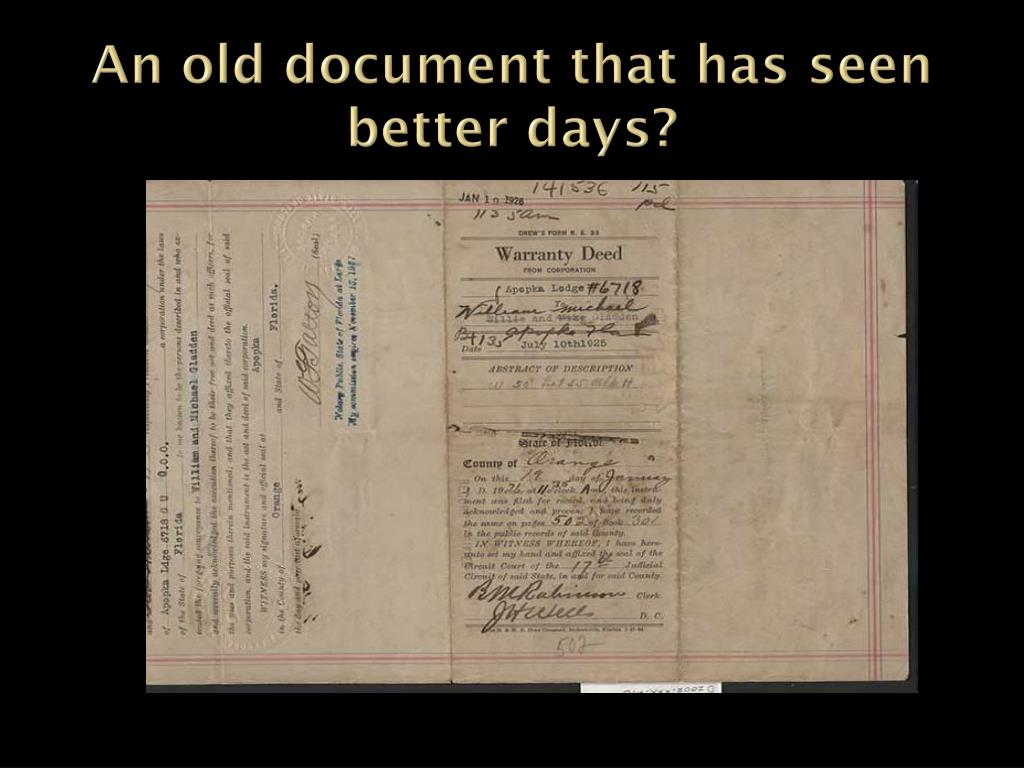 An old document that has seen
better days?
141536 115
JAN 19 1926 pd
11 35 am
DREW'S FORM R. E. 33
Warranty Deed
FROM CORPORATION
Apopka Lodge #6718
To
William Michael
Willie and Gladden
Apopka Fla
Date July 10th1925
ABSTRACT OF DESCRIPTION
State of Florida
County of Orange
On this 19 day of January
A. D. 19 at 11 35 o'clock Am, this instru-
ment was filed for record, and being duly
acknowledged and proven, I have recorded
the same on pages 502 of Book 301
in the public records of said County.
IN WITNESS WHEREOF, I have here-
unto set my hand and affixed the seal of the
Circuit Court of the 17th Judicial
Circuit of said State, in and for said County.
B M Robinson Clerk.
D. C.
502
a corporation under the laws
of Apopka Ldge 6718 G U O.O.O.
of the State of Florida to me known to be the persons described in and who ex-
ecuted the foregoing conveyance to William and Michael Gladden
and severally acknowledged the execution thereof to be their free act and deed as such officers, for
the uses and purposes therein mentioned; and that they affixed thereto the official seal of said
corporation, and the said instrument is the act and deed of said corporation.
WITNESS my signature and official seal at Apopka
in the County of Orange and State of Florida,
the day and year
(Seal)
Notary Public, State of Florida at Large
My commission expires November 15, 1927